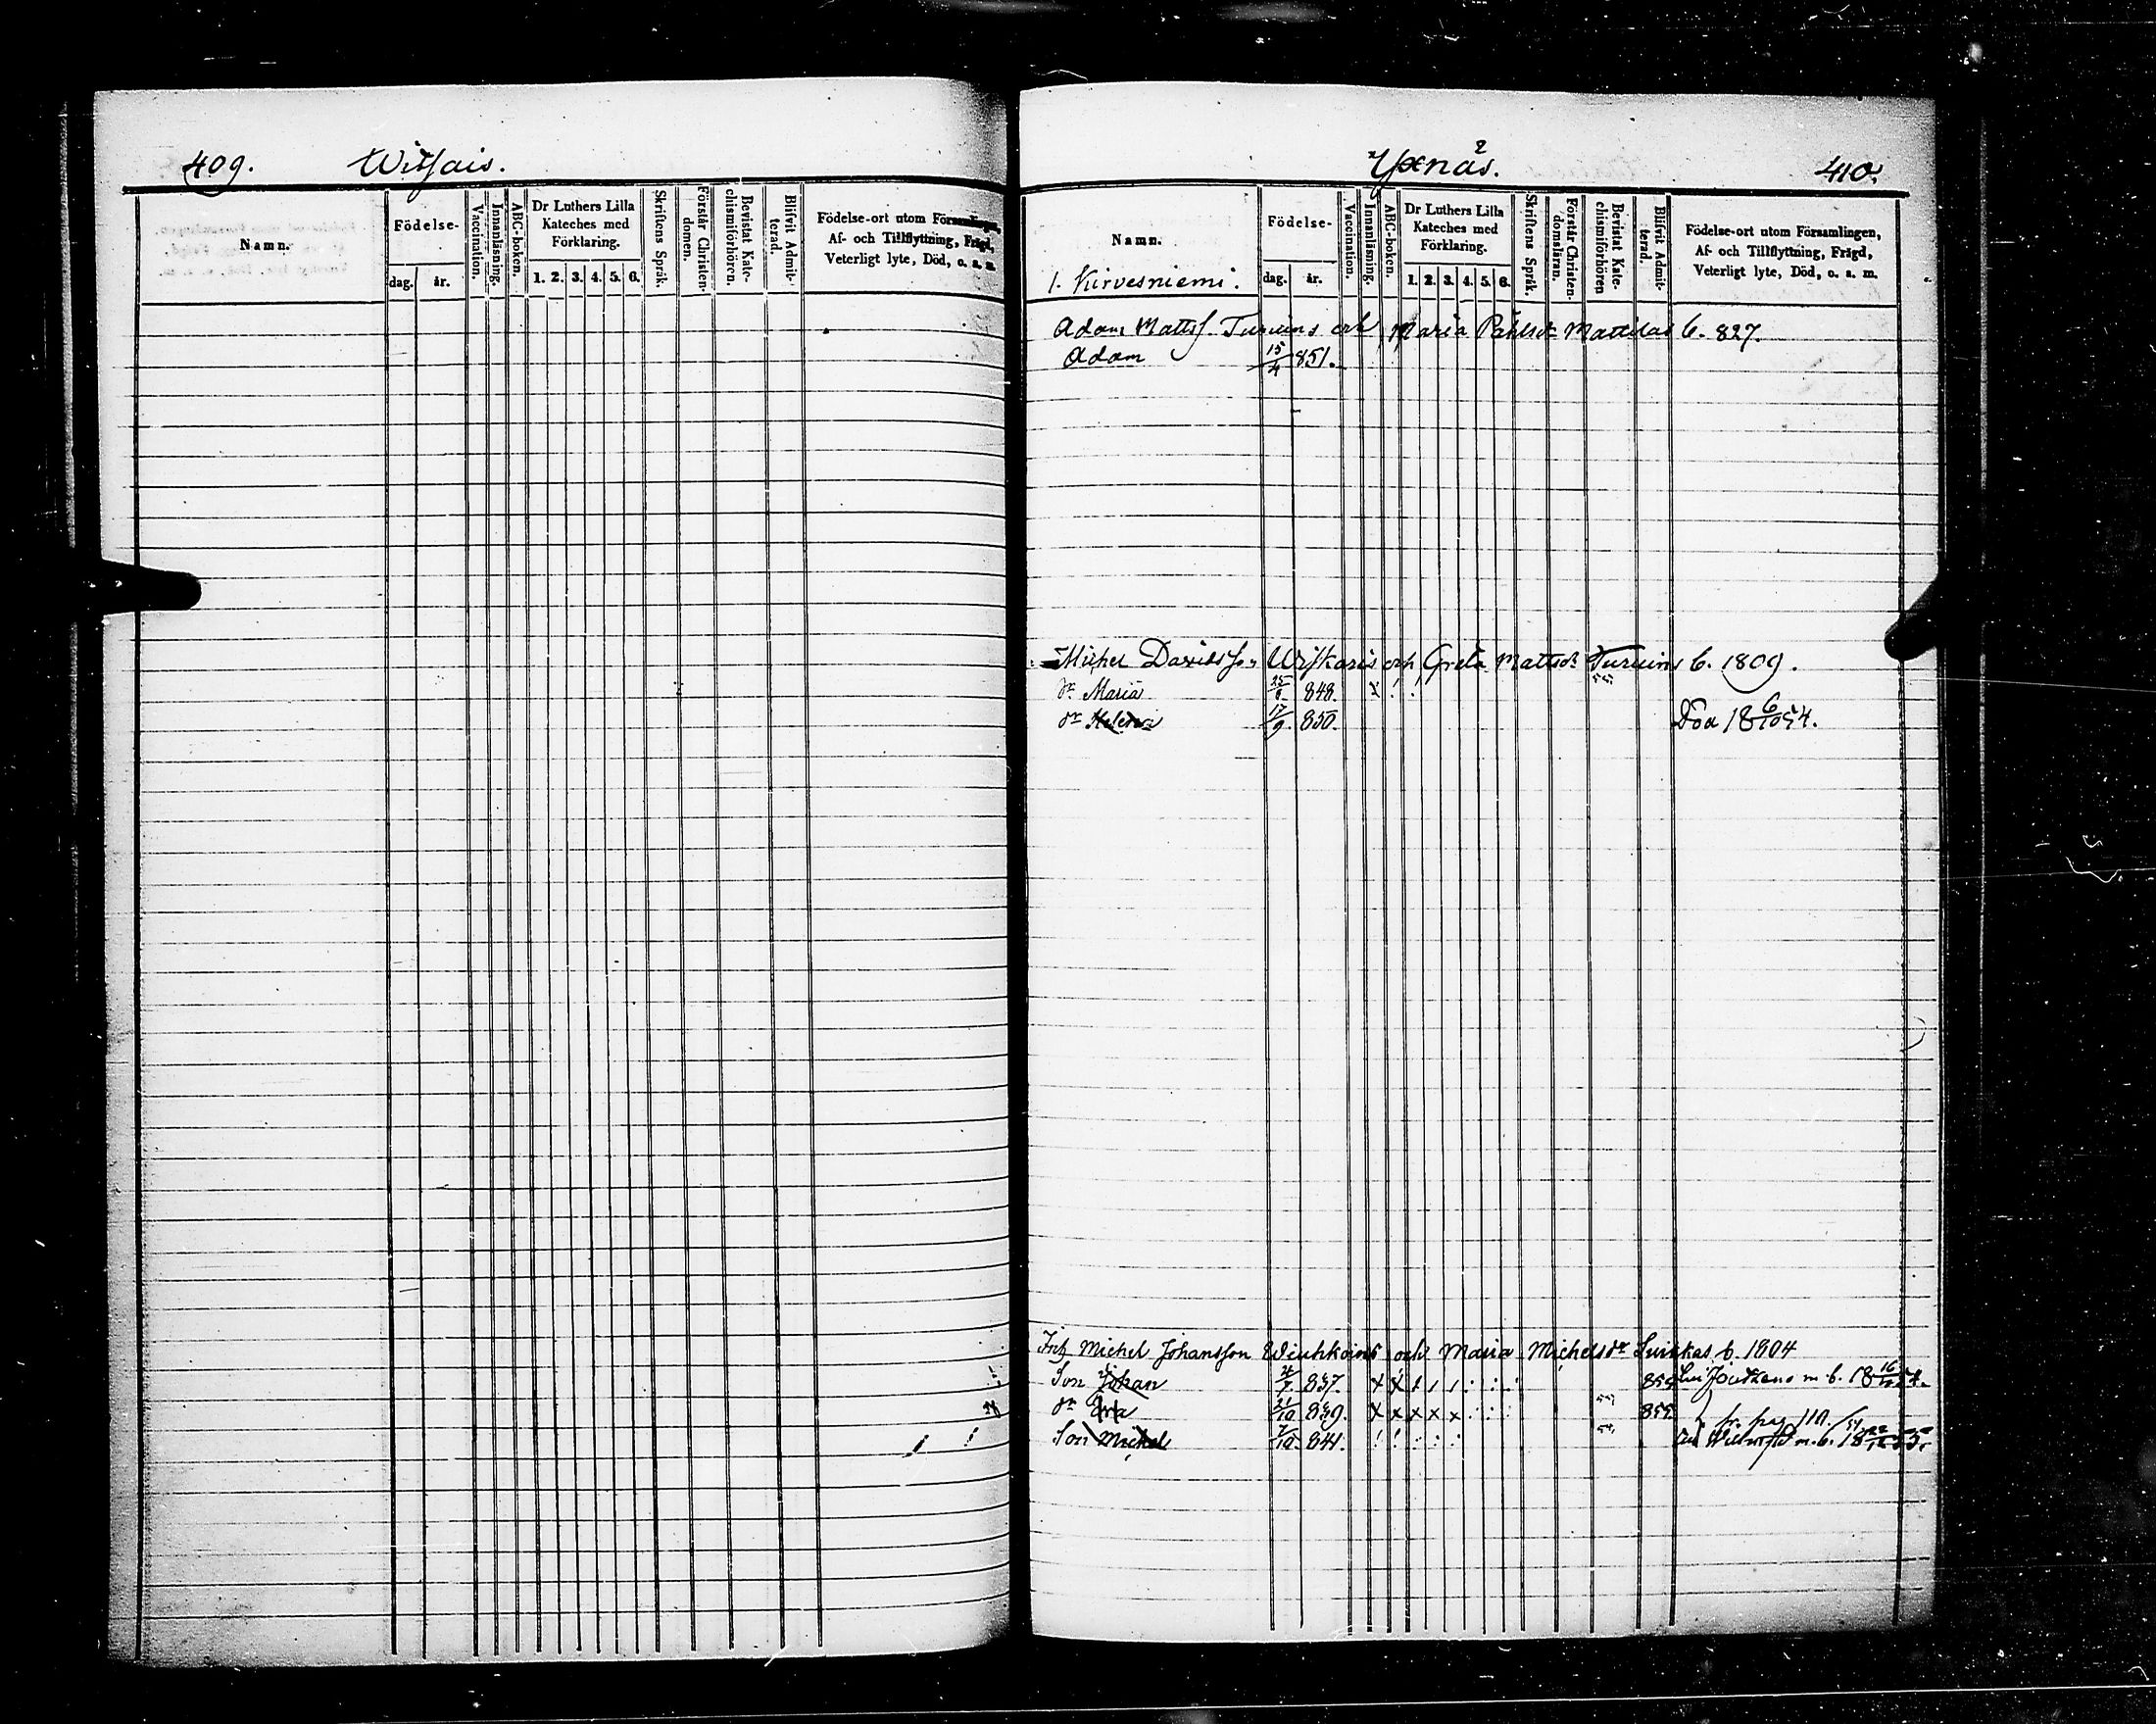 409. Witsais.
Namn.
Födelse-
dag. år.
Vaccination.
Innanläsning.
ABC-boken.
Dr Luthers Lilla
Kateches med
Förklaring.
1. 2. 3. 4. 5. 6.
Skriftens Språk.
Förstår Christen-
domen.
Bevistat Kate-
chismiförhören.
Blifvit Admit-
terad.
Födelse-ort utom Församlingen,
Af- och Tillflyttning, Frägd,
Veterligt lyte, Död, o. s. m.
Yxnäs. 410.
Namn.
1. Kirvesniemi.
Födelse-
dag. år.
Vaccination.
Innanläsning.
ABC-boken.
Dr Luthers Lilla
Kateches med
Förklaring.
1. 2. 3. 4. 5. 6.
Skriftens Språk.
Förstår Christen-
domsläran.
Bevistat Kate-
chismiförhören
Blifvit Admit-
terad.
Födelse-ort utom Församlingen,
Af- och Tillflyttning, Frägd,
Veterligt lyte, Död, o. s. m.
Adam Mattss. Turuins och Maria Påhlsdr Mattilas b. 827.
Adam 15/4 851.
Michel Davidsson och Greta Mattsdr Turuins b. 1809.
dr Maria 25/8 848.
dr Helena 17/9 850. Död 18 6/10 54.
Michel Johansson och Maria Michelsdr b. 1804
Son Johan 4/7 837. x x 855 m. b. 18 16/
dr 21/10 839. x x x x x 855 fr. pag
Son Michel 7/10 841. m. b. 18 55.